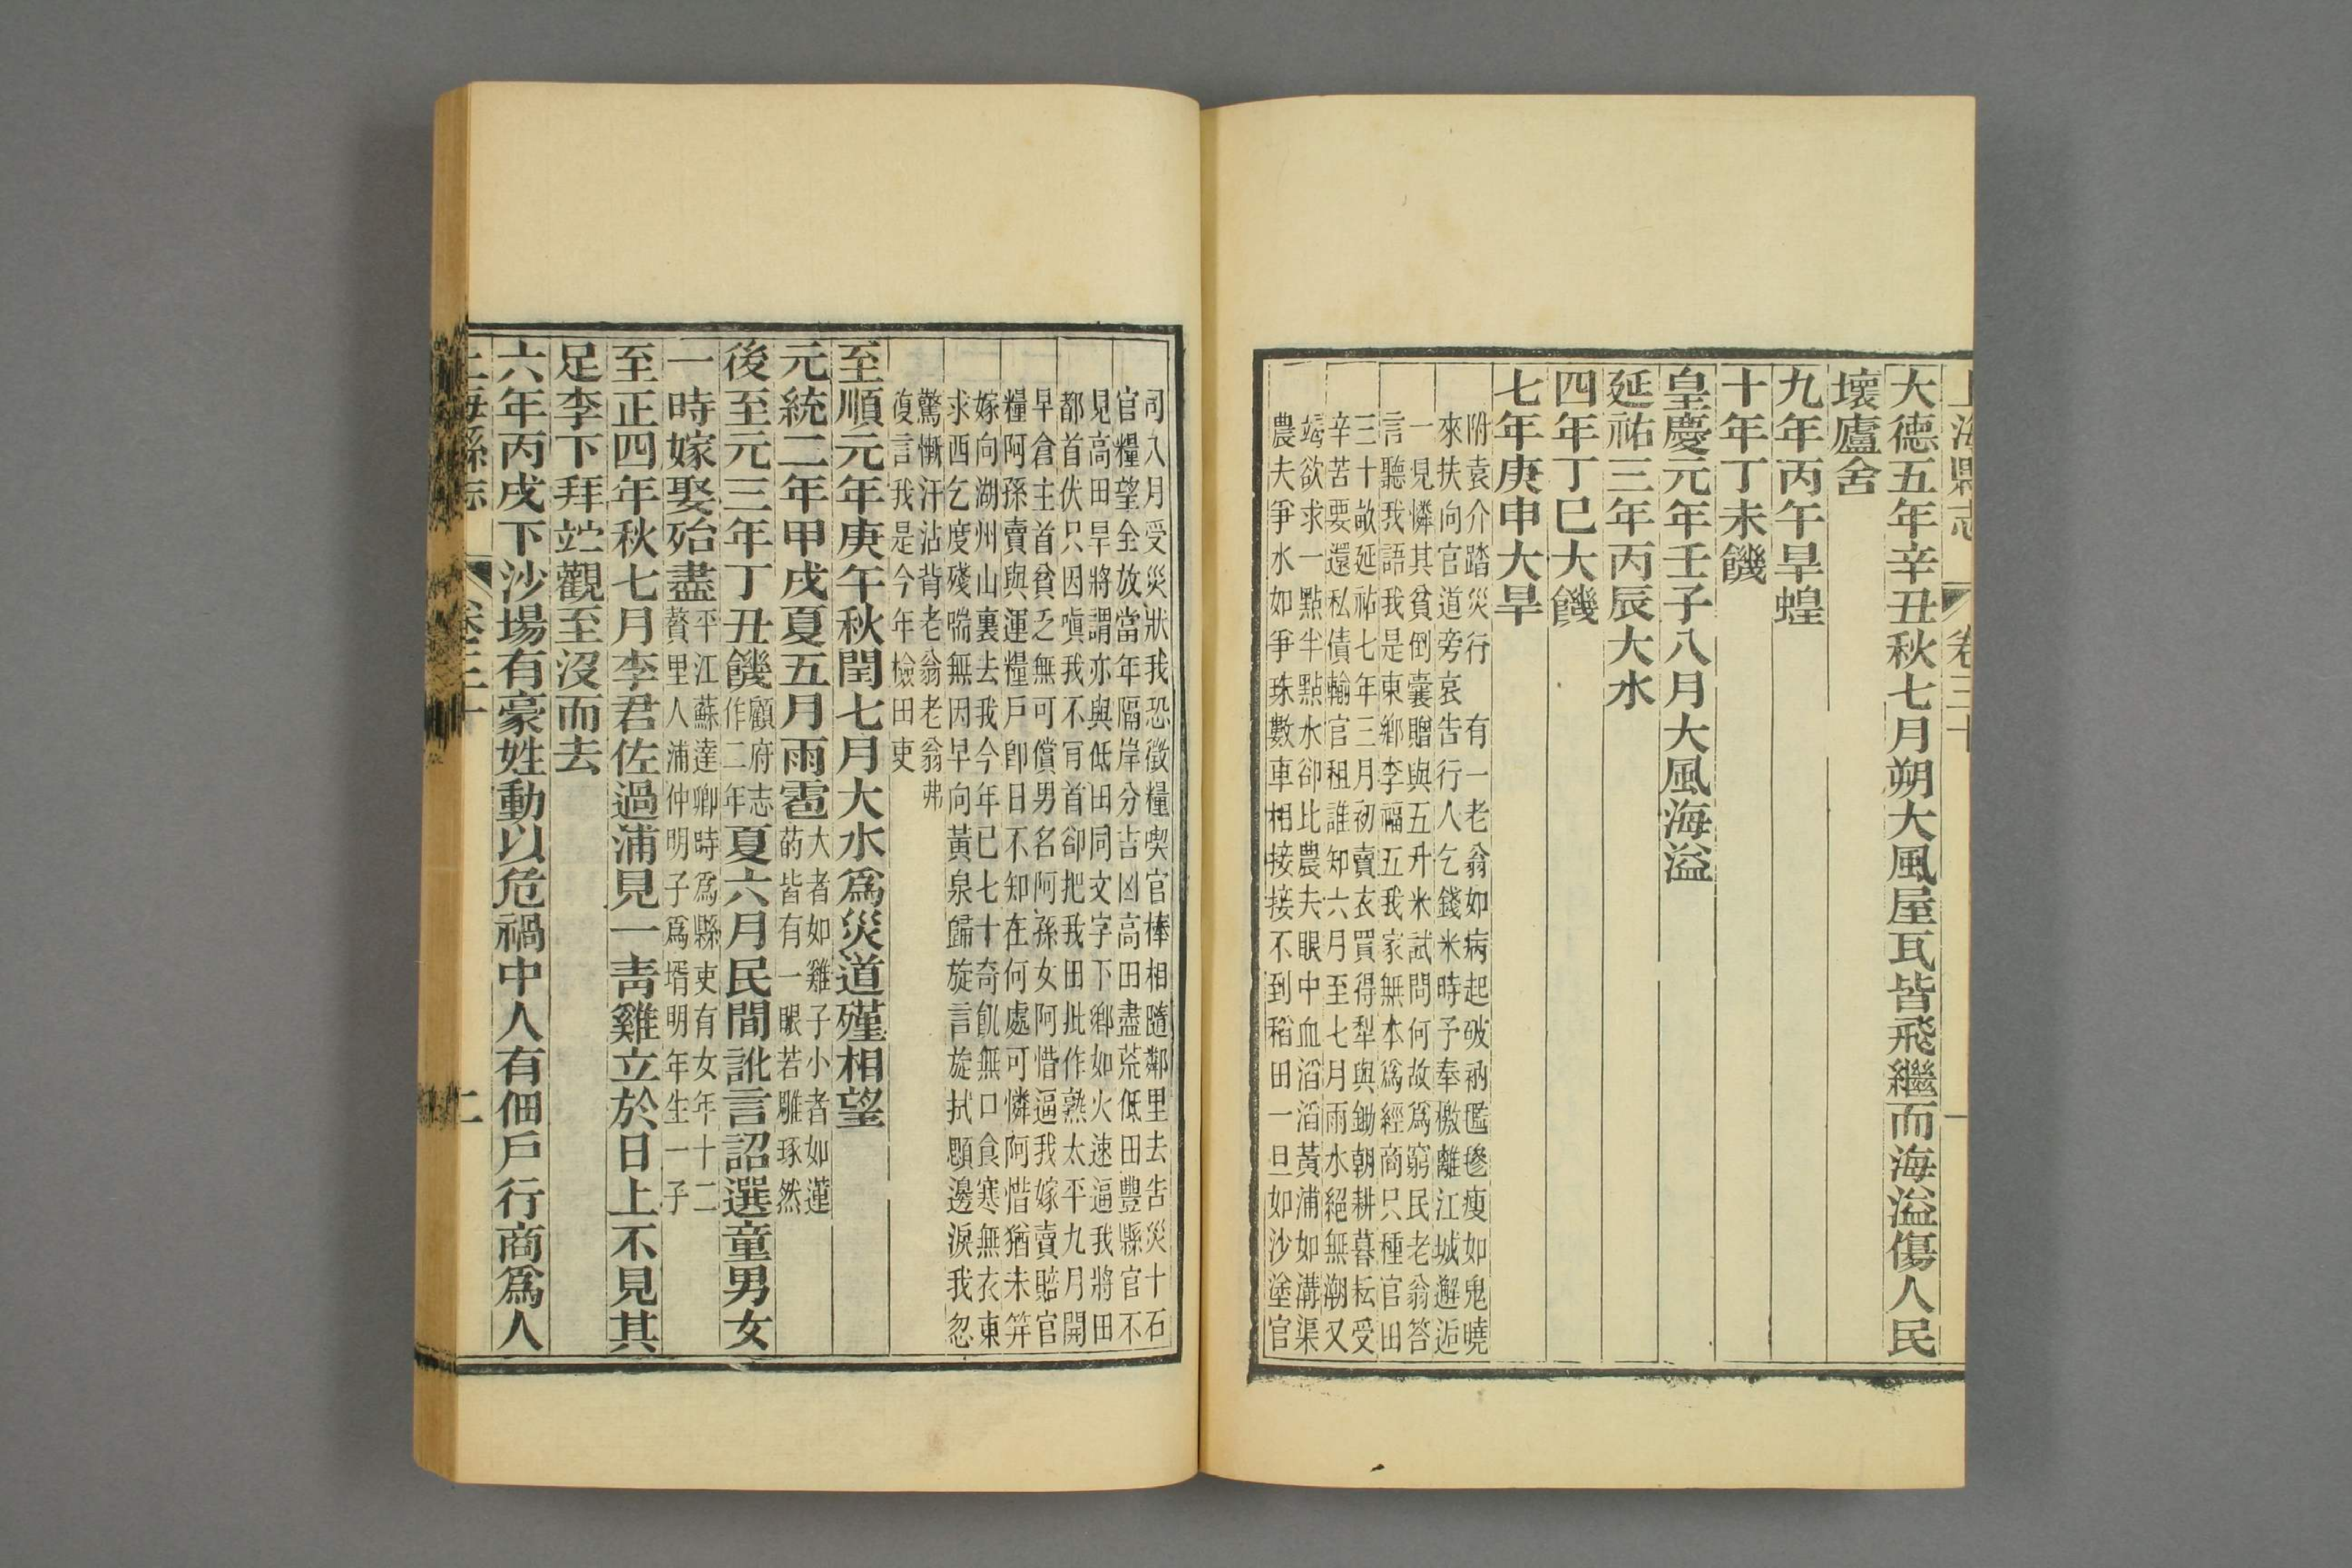 上海縣志
卷三十
一
大德五年辛丑秋七月朔大風屋瓦皆飛繼而海溢傷人民
壞廬舍
九年丙午旱蝗
十年丁未饑
皇慶元年壬子八月大風海溢
延祐三年丙辰大水
四年丁巳大饑
七年庚申大旱
附袁介踏災行　有一老翁如病起破衲䙰毿瘦如鬼曉
來扶向官道旁哀告行人乞錢米時予奉檄離江城邂逅
一見憐其貧倒囊贈與五升米試問何故爲窮民老翁答
言聽我語我是東鄉李福五我家無本爲經商只種官田
三十畝延祐七年三月初賣衣買得犁與鋤朝耕暮耘受
辛苦要還私債輸官租誰知六月至七月雨水絕無潮又
竭欲求一點半點水卻比農夫眼中血滔滔黃浦如溝渠
農夫爭水如爭珠數車相接接不到稻田一旦如沙塗官
司八月受災狀我恐徵糧喫官棒相隨鄰里去告災十石
官糧望全放當年隔岸分吉凶高田盡荒低田豐縣官不
見高田旱將謂亦與低田同文字下鄉如火速逼我將田
都首伏只因嗔我不肯首卻把我田批作熟太平九月開
早倉主首貧乏無可償男名阿孫女阿惜逼我嫁賣賠官
糧阿孫賣與運糧戶卽日不知在何處可憐阿惜猶未笄
嫁向湖州山裏去我今年已七十奇飢無口食寒無衣東
求西乞度殘喘無因早向黃泉歸旋言旋拭顋邊淚我忽
驚慚汗沾背老翁老翁弗
復言我是今年檢田吏
至順元年庚午秋閏七月大水爲災道殣相望
元統二年甲戌夏五月雨雹大者如雞子小者如蓮
菂皆有一眼若雕琢然
後至元三年丁丑饑顧府志
作二年夏六月民間訛言詔選童男女
一時嫁娶殆盡平江蘇達卿時爲縣吏有女年十二
贅里人浦仲明子爲壻明年生一子
至正四年秋七月李君佐過浦見一靑雞立於日上不見其
足李下拜竝觀至沒而去
六年丙戌下沙場有豪姓動以危禍中人有佃戶行商爲人
上海縣志
卷三十
二